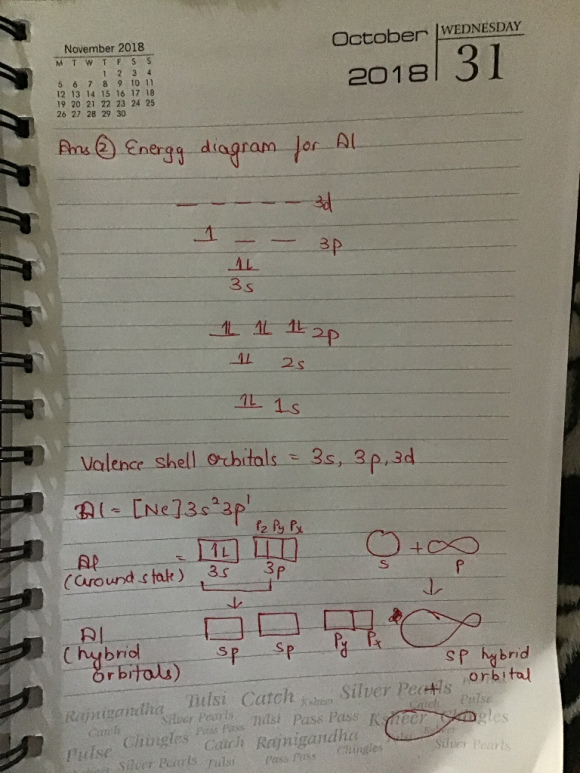 November 2018
M T W T F S S
1 2 3 4
5 6 7 8 9 10 11
12 13 14 15 16 17 18
19 20 21 22 23 24 25
26 27 28 29 30
October 2018
WEDNESDAY
31
Ans ② Energy diagram for Al
3d
1 3p
1L
3s
1L 1L 1L 2p
1L 2s
1L 1s
Valence shell orbitals = 3s, 3p, 3d
Al = [Ne] 3s² 3p¹
Pz Py Px
Al = 1L
(Ground state) 3s 3p
+
s p
Al
(hybrid orbitals)
sp sp Py Px
sp hybrid orbital
+
Rajnigandha Tulsi Catch Ksheer Silver Pearls
Catch Silver Pearls Pass Pass Tulsi Pass Pass Ksheer Catch Pulse Chingles
Pulse Chingles Catch Rajnigandha
Silver Pearls Tulsi Pass Pass Chingles Silver Pearls